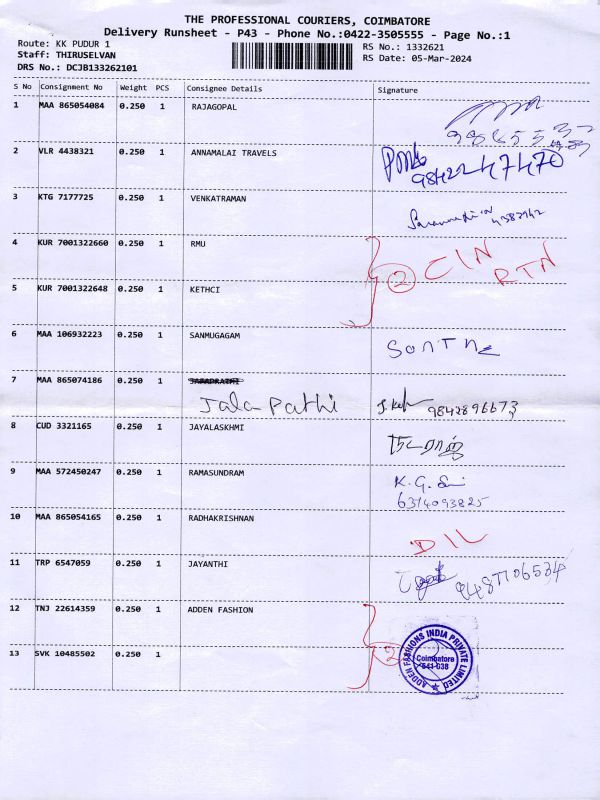 THE PROFESSIONAL COURIERS, COIMBATORE
Delivery Runsheet - P43 - Phone No.:0422-3505555 - Page No.:1
Route: KK PUDUR 1
RS No.: 1332621
Staff: THIRUSELVAN
RS Date: 05-Mar-2024
DRS No.: DCJB133262101
S No Consignment No Weight PCS Consignee Details Signature
1 MAA 865054084 0.250 1 RAJAGOPAL
2 VLR 4438321 0.250 1 ANNAMALAI TRAVELS
98422 47470
3 KTG 7177725 0.250 1 VENKATRAMAN
4 KUR 7001322660 0.250 1 RMU
2 CIN
RTN
5 KUR 7001322648 0.250 1 KETHCI
6 MAA 106932223 0.250 1 SANMUGAGAM
7 MAA 865074186 0.250 1
Jala Pathi 9842896673
8 CUD 3321165 0.250 1 JAYALASKHMI
நடராஜ்
9 MAA 572450247 0.250 1 RAMASUNDRAM
K. G.
6374093825
10 MAA 865054165 0.250 1 RADHAKRISHNAN
DIL
11 TRP 6547059 0.250 1 JAYANTHI
9487106534
12 TNJ 22614359 0.250 1 ADDEN FASHION
13 SVK 10485502 0.250 1
2
ADDEN FASHIONS INDIA PRIVATE LIMITED
Coimbatore
641 038